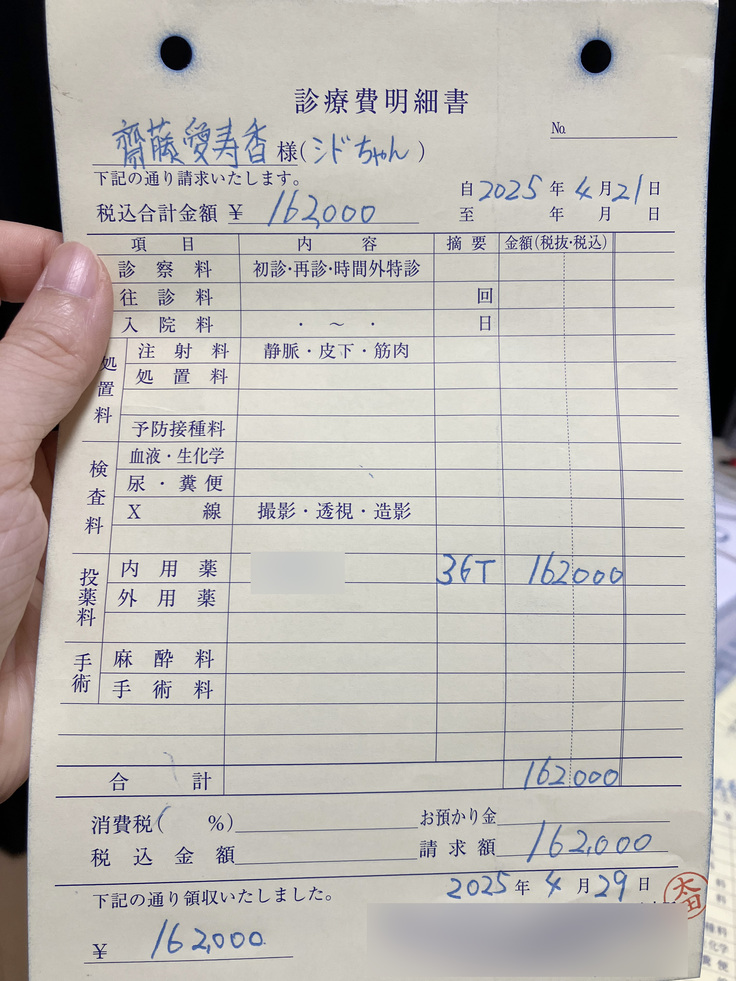 診療費明細書
No.
齋藤愛寿香様(シドちゃん)
下記の通り請求いたします。
自2025年4月21日
税込合計金額 ¥ 162,000
至 年 月 日
項目 内容 摘要 金額(税抜・税込)
診察料 初診・再診・時間外特診
往診料 回
入院料 ・ 〜 ・ 日
処置料
注射料 静脈・皮下・筋肉
処置料
予防接種料
検査料
血液・生化学
尿・糞便
X線 撮影・透視・造影
投薬料
内用薬 36T 162000
外用薬
手術
麻酔料
手術料
合計 162000
消費税( %) お預かり金
税込金額 請求額 162,000
下記の通り領収いたしました。 2025年4月29日
太田
¥ 162,000